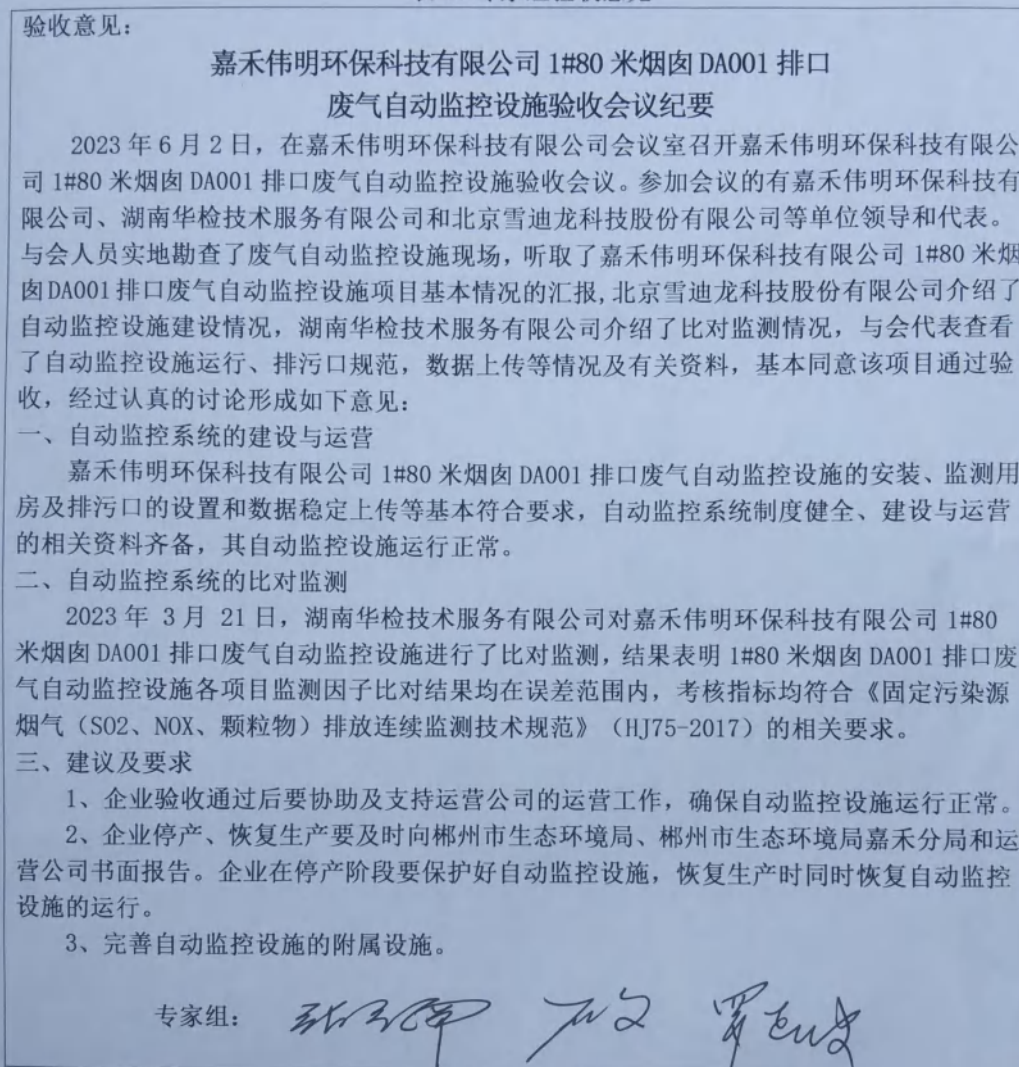 验收意见：
嘉禾伟明环保科技有限公司 1#80 米烟囱 DA001 排口
废气自动监控设施验收会议纪要
2023 年 6 月 2 日，在嘉禾伟明环保科技有限公司会议室召开嘉禾伟明环保科技有限公
司 1#80 米烟囱 DA001 排口废气自动监控设施验收会议。参加会议的有嘉禾伟明环保科技有
限公司、湖南华检技术服务有限公司和北京雪迪龙科技股份有限公司等单位领导和代表。
与会人员实地勘查了废气自动监控设施现场，听取了嘉禾伟明环保科技有限公司 1#80 米烟
囱 DA001 排口废气自动监控设施项目基本情况的汇报,北京雪迪龙科技股份有限公司介绍了
自动监控设施建设情况，湖南华检技术服务有限公司介绍了比对监测情况，与会代表查看
了自动监控设施运行、排污口规范，数据上传等情况及有关资料，基本同意该项目通过验
收，经过认真的讨论形成如下意见：
一、自动监控系统的建设与运营
嘉禾伟明环保科技有限公司 1#80 米烟囱 DA001 排口废气自动监控设施的安装、监测用
房及排污口的设置和数据稳定上传等基本符合要求，自动监控系统制度健全、建设与运营
的相关资料齐备，其自动监控设施运行正常。
二、自动监控系统的比对监测
2023 年 3 月 21 日，湖南华检技术服务有限公司对嘉禾伟明环保科技有限公司 1#80
米烟囱 DA001 排口废气自动监控设施进行了比对监测，结果表明 1#80 米烟囱 DA001 排口废
气自动监控设施各项目监测因子比对结果均在误差范围内，考核指标均符合《固定污染源
烟气（SO2、NOX、颗粒物）排放连续监测技术规范》（HJ75-2017）的相关要求。
三、建议及要求
1、企业验收通过后要协助及支持运营公司的运营工作，确保自动监控设施运行正常。
2、企业停产、恢复生产要及时向郴州市生态环境局、郴州市生态环境局嘉禾分局和运
营公司书面报告。企业在停产阶段要保护好自动监控设施，恢复生产时同时恢复自动监控
设施的运行。
3、完善自动监控设施的附属设施。
专家组：